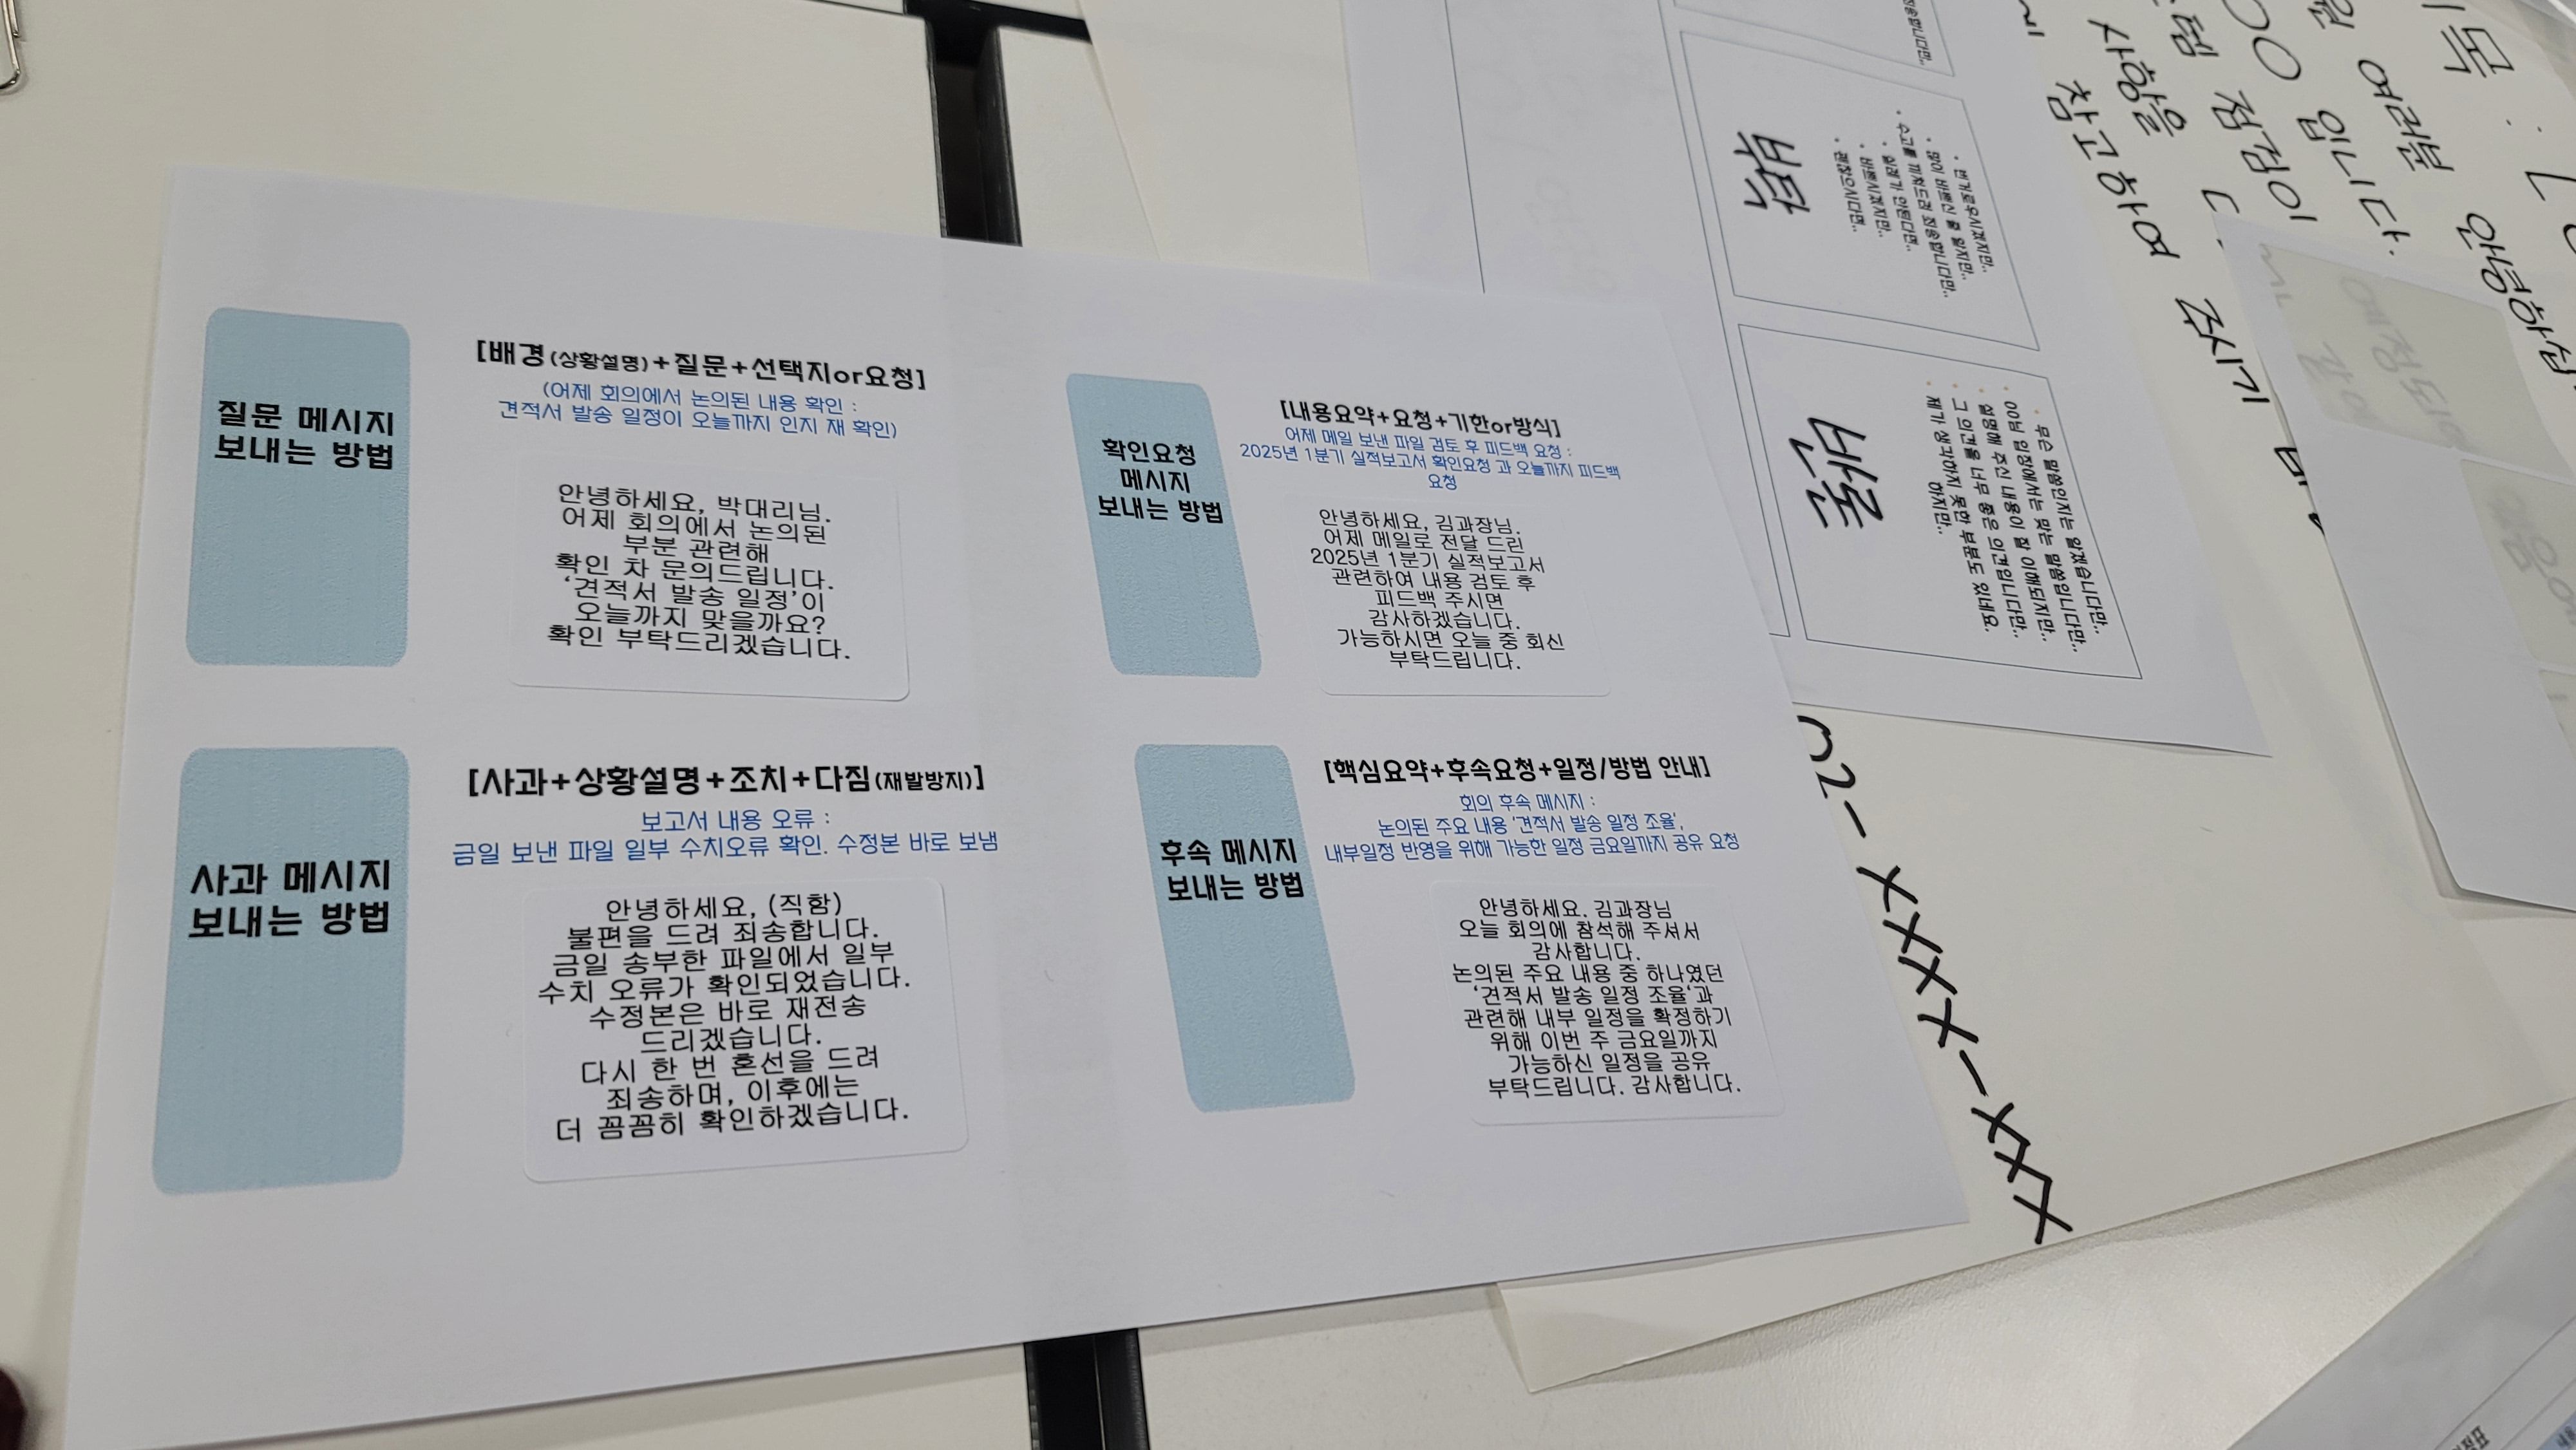 질문 메시지
보내는 방법
[배경(상황설명)+질문+선택지or요청]
(어제 회의에서 논의된 내용 확인 :
견적서 발송 일정이 오늘까지 인지 재 확인)
안녕하세요, 박대리님.
어제 회의에서 논의된
부분 관련해
확인 차 문의드립니다.
‘견적서 발송 일정’이
오늘까지 맞을까요?
확인 부탁드리겠습니다.
확인요청
메시지
보내는 방법
[내용요약+요청+기한or방식]
어제 메일 보낸 파일 검토 후 피드백 요청 :
2025년 1분기 실적보고서 확인요청 과 오늘까지 피드백
요청
안녕하세요, 김과장님.
어제 메일로 전달 드린
2025년 1분기 실적보고서
관련하여 내용 검토 후
피드백 주시면
감사하겠습니다.
가능하시면 오늘 중 회신
부탁드립니다.
사과 메시지
보내는 방법
[사과+상황설명+조치+다짐(재발방지)]
보고서 내용 오류 :
금일 보낸 파일 일부 수치오류 확인. 수정본 바로 보냄
안녕하세요, (직함)
불편을 드려 죄송합니다.
금일 송부한 파일에서 일부
수치 오류가 확인되었습니다.
수정본은 바로 재전송
드리겠습니다.
다시 한 번 혼선을 드려
죄송하며, 이후에는
더 꼼꼼히 확인하겠습니다.
후속 메시지
보내는 방법
[핵심요약+후속요청+일정/방법 안내]
회의 후속 메시지 :
논의된 주요 내용 '견적서 발송 일정 조율',
내부일정 반영을 위해 가능한 일정 금요일까지 공유 요청
안녕하세요. 김과장님
오늘 회의에 참석해 주셔서
감사합니다.
논의된 주요 내용 중 하나였던
‘견적서 발송 일정 조율‘과
관련해 내부 일정을 확정하기
위해 이번 주 금요일까지
가능하신 일정을 공유
부탁드립니다. 감사합니다.
부탁
번거로우시겠지만..
많이 바쁘신 줄 알지만..
수고를 끼쳐드려 죄송합니다만..
실례가 안된다면..
바쁘시겠지만..
괜찮으시다면..
반론
무슨 말씀인지는 알겠습니다만..
00님 입장에서는 맞는 말씀입니다만..
설명해 주신 내용이 잘 이해되지만..
그 의견을 너무 좋은 의견입니다만..
제가 생각하지 못한 부분도 있네요.
하지만..
여러분 안녕하십
OO 입니다.
점검이
사항을
참고하여
02-XXXX-XXX